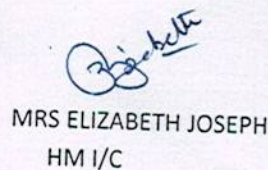 Elizabeth
MRS ELIZABETH JOSEPH
HM I/C